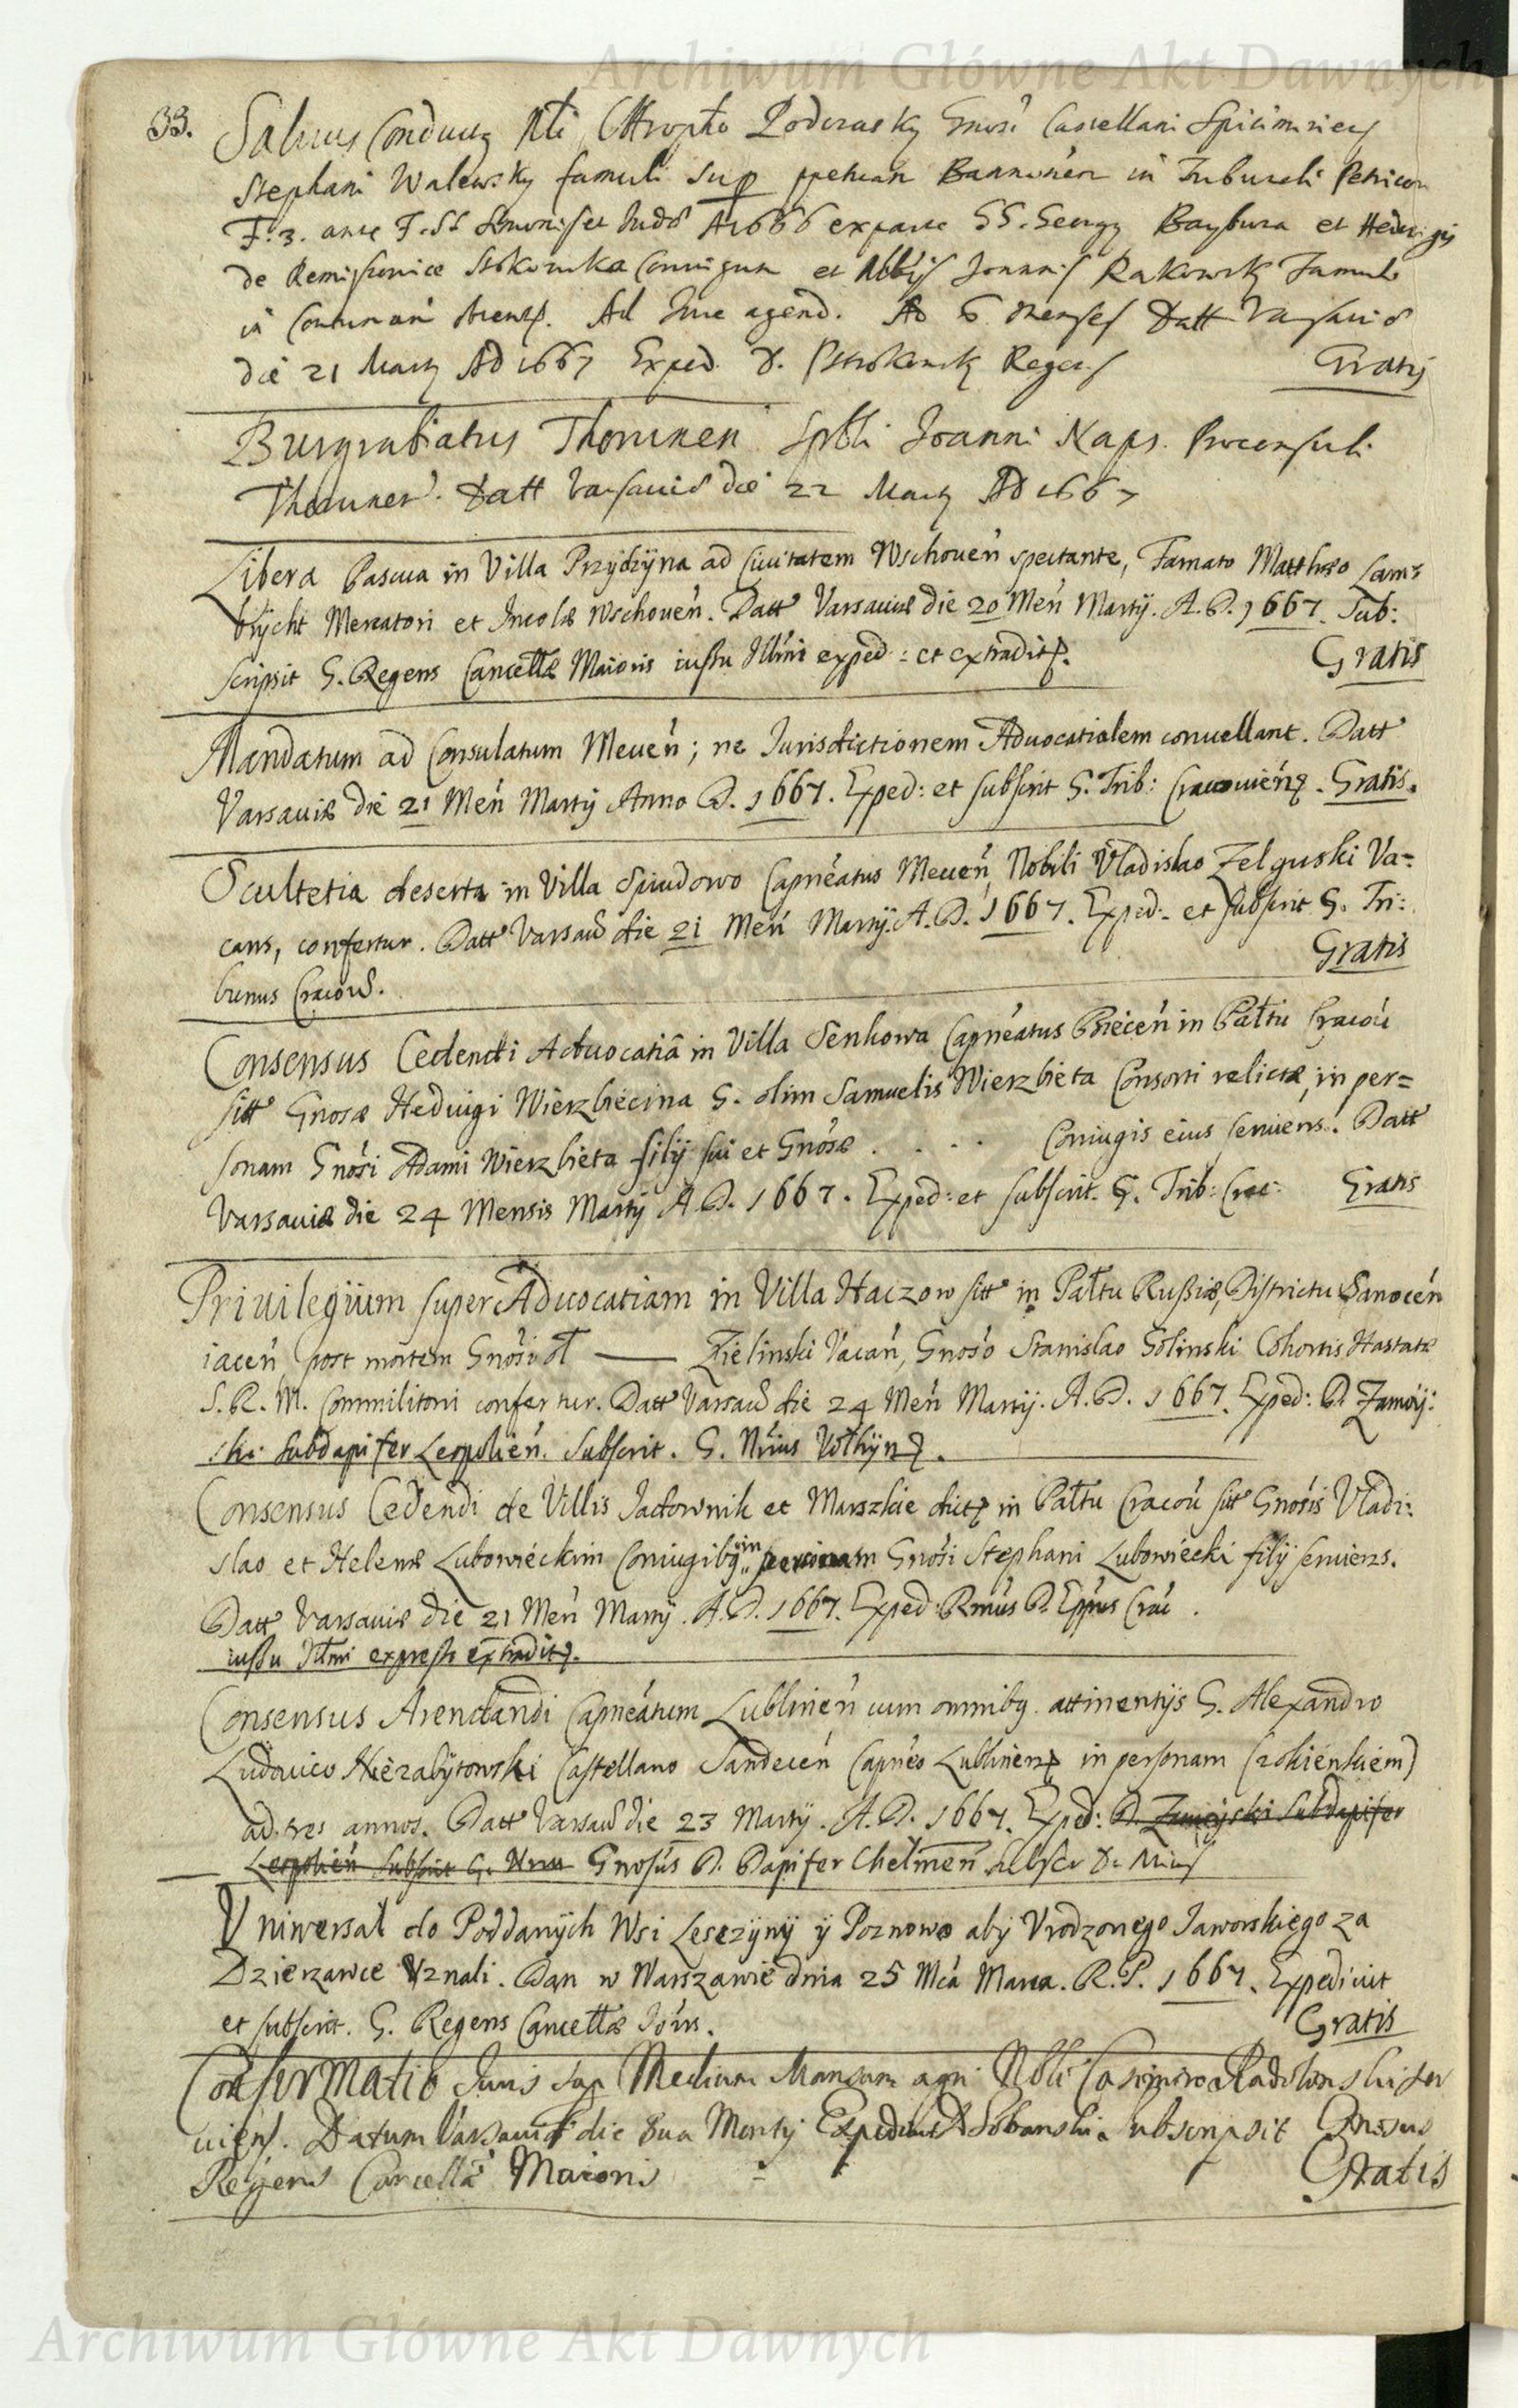 Archiwum Główne Akt Dawnych
33.
Salvus Conduct9 Nli Podczasky Gnosi Castellani Spicimirien
Stephani Walewsky famuli Sup Bannionen in Tribunali Petricon
F. 3. ante F. SS Simonis et Judæ A 1666 ex parte GG. Georgy Baybuza et Hedwigis
de Conjugum et Nbbis Joannis Rakowsky Famuli
in Ad Jure agend. Ad 6 Menses Datt Varsaviæ
die 21 Marty AD 1667 Exped. D. Regens Gratis
Burgrabiatus Thorunen Sptli Joanni Naps. Proconsuli
Thorunen. Datt Varsaviæ die 22 Marty AD 1667
Libera Pascua in Villa Przydzyna ad Civitatem Wschoueń spectante, Famato Matthæo Lam=
brycht Mercatori et Incolæ Wschoueń. Datt Varsauiæ die 20 Meń Martij. A. D. 1667. Sub:
scripsit G. Regens Cancellæ Maioris iussu Illmi exped: et extradit.
Gratis
Mandatum ad Consulatum Meueń; ne Iurisdictionem Aduocatialem conuellant. Datt
Varsauiæ die 21 Meń Martij Anno D. 1667. Exped: et subscrit G. Trib: Cracouień. Gratis.
Scultetia deserta in Villa Spiudowo Capneatus Meueń, Nobili Vladislao Zelguski Va=
cans, confertur. Datt Varsau die 21 Meń Martij. A. D. 1667. Exped. et subscrit G. Tri:
bunus Cracou.
Gratis
Consensus Cedendi Aduocatiâ in Villa Senkowa Capneatus Bieceń in Paltu Cracou
sitt Gnosæ Heduigi Wierzbiecina G. olim Samuelis Wierzbieta Consorti relictæ, in per=
sonam Gnosi Adami Wierzbieta filij sui et Gnosæ . . . Coniugis eius seruiens. Datt
Varsauiæ die 24 Mensis Martij A. D. 1667. Exped: et subscrit. G. Trib: Crac: Gratis
Priuilegium super Aduocatiam in Villa Haczow sitt in Paltu Russiæ, Districtu Sanoceń
iaceń, post mortem Gnosi ol —— Zielinski Vacań, Gnoso Stanislao Golinski Cohortis Hastatæ
S. R. M. Commilitoni confertur. Datt Varsau die 24 Meń Martij. A. D. 1667. Exped: D. Zamoij:
ski Subdapifer Leopolień. Subscrit. G. Nrius Wołhyn.
Consensus Cedendi de Villis Jadownik et Marszkie dict in Paltu Cracou sitt Gnosis Vladi:
slao et Helenæ Lubowieckim Coniugib9 in personam Gnosi Stephani Lubowiecki filij seruiens.
Datt Varsauiæ die 21 Meń Martij. A. D. 1667. Exped: Rmus D. Eppus Crac.
iussu Illmi expresse extradit.
Consensus Arendandi Capneatum Lublineń cum omnib9 attinentijs G. Alexandro
Ludouico Niezabytowski Castellano Sandeceń Capneo Lublinen in personam
ad tres annos. Datt Varsau die 23 Martij. A. D. 1667. Exped: D. Zamojski Subdapifer
Leopolień Subscrit G. Nrius Gnosus D. Dapifer Chelmeń
Vniwersał do Poddanych Wsi Lesczyny ÿ Poznowo aby Vrodzonego Jaworskiego za
Dzierzawce Vznali. Dan w Warszawie dnia 25 Mca Marca. R. P. 1667. Expediuit
et subscrit. G. Regens Cancellæ Ioris.
Gratis
Confirmatio Juris sup Medium Mansum agri Nbli Casimiro Radolinski ser
uiens. Datum Varsauiæ die 8ua Martij Expediuit D Sobanski. Subscripsit Gnosus
Regens Cancellæ Maioris Gratis
Archiwum Główne Akt Dawnych